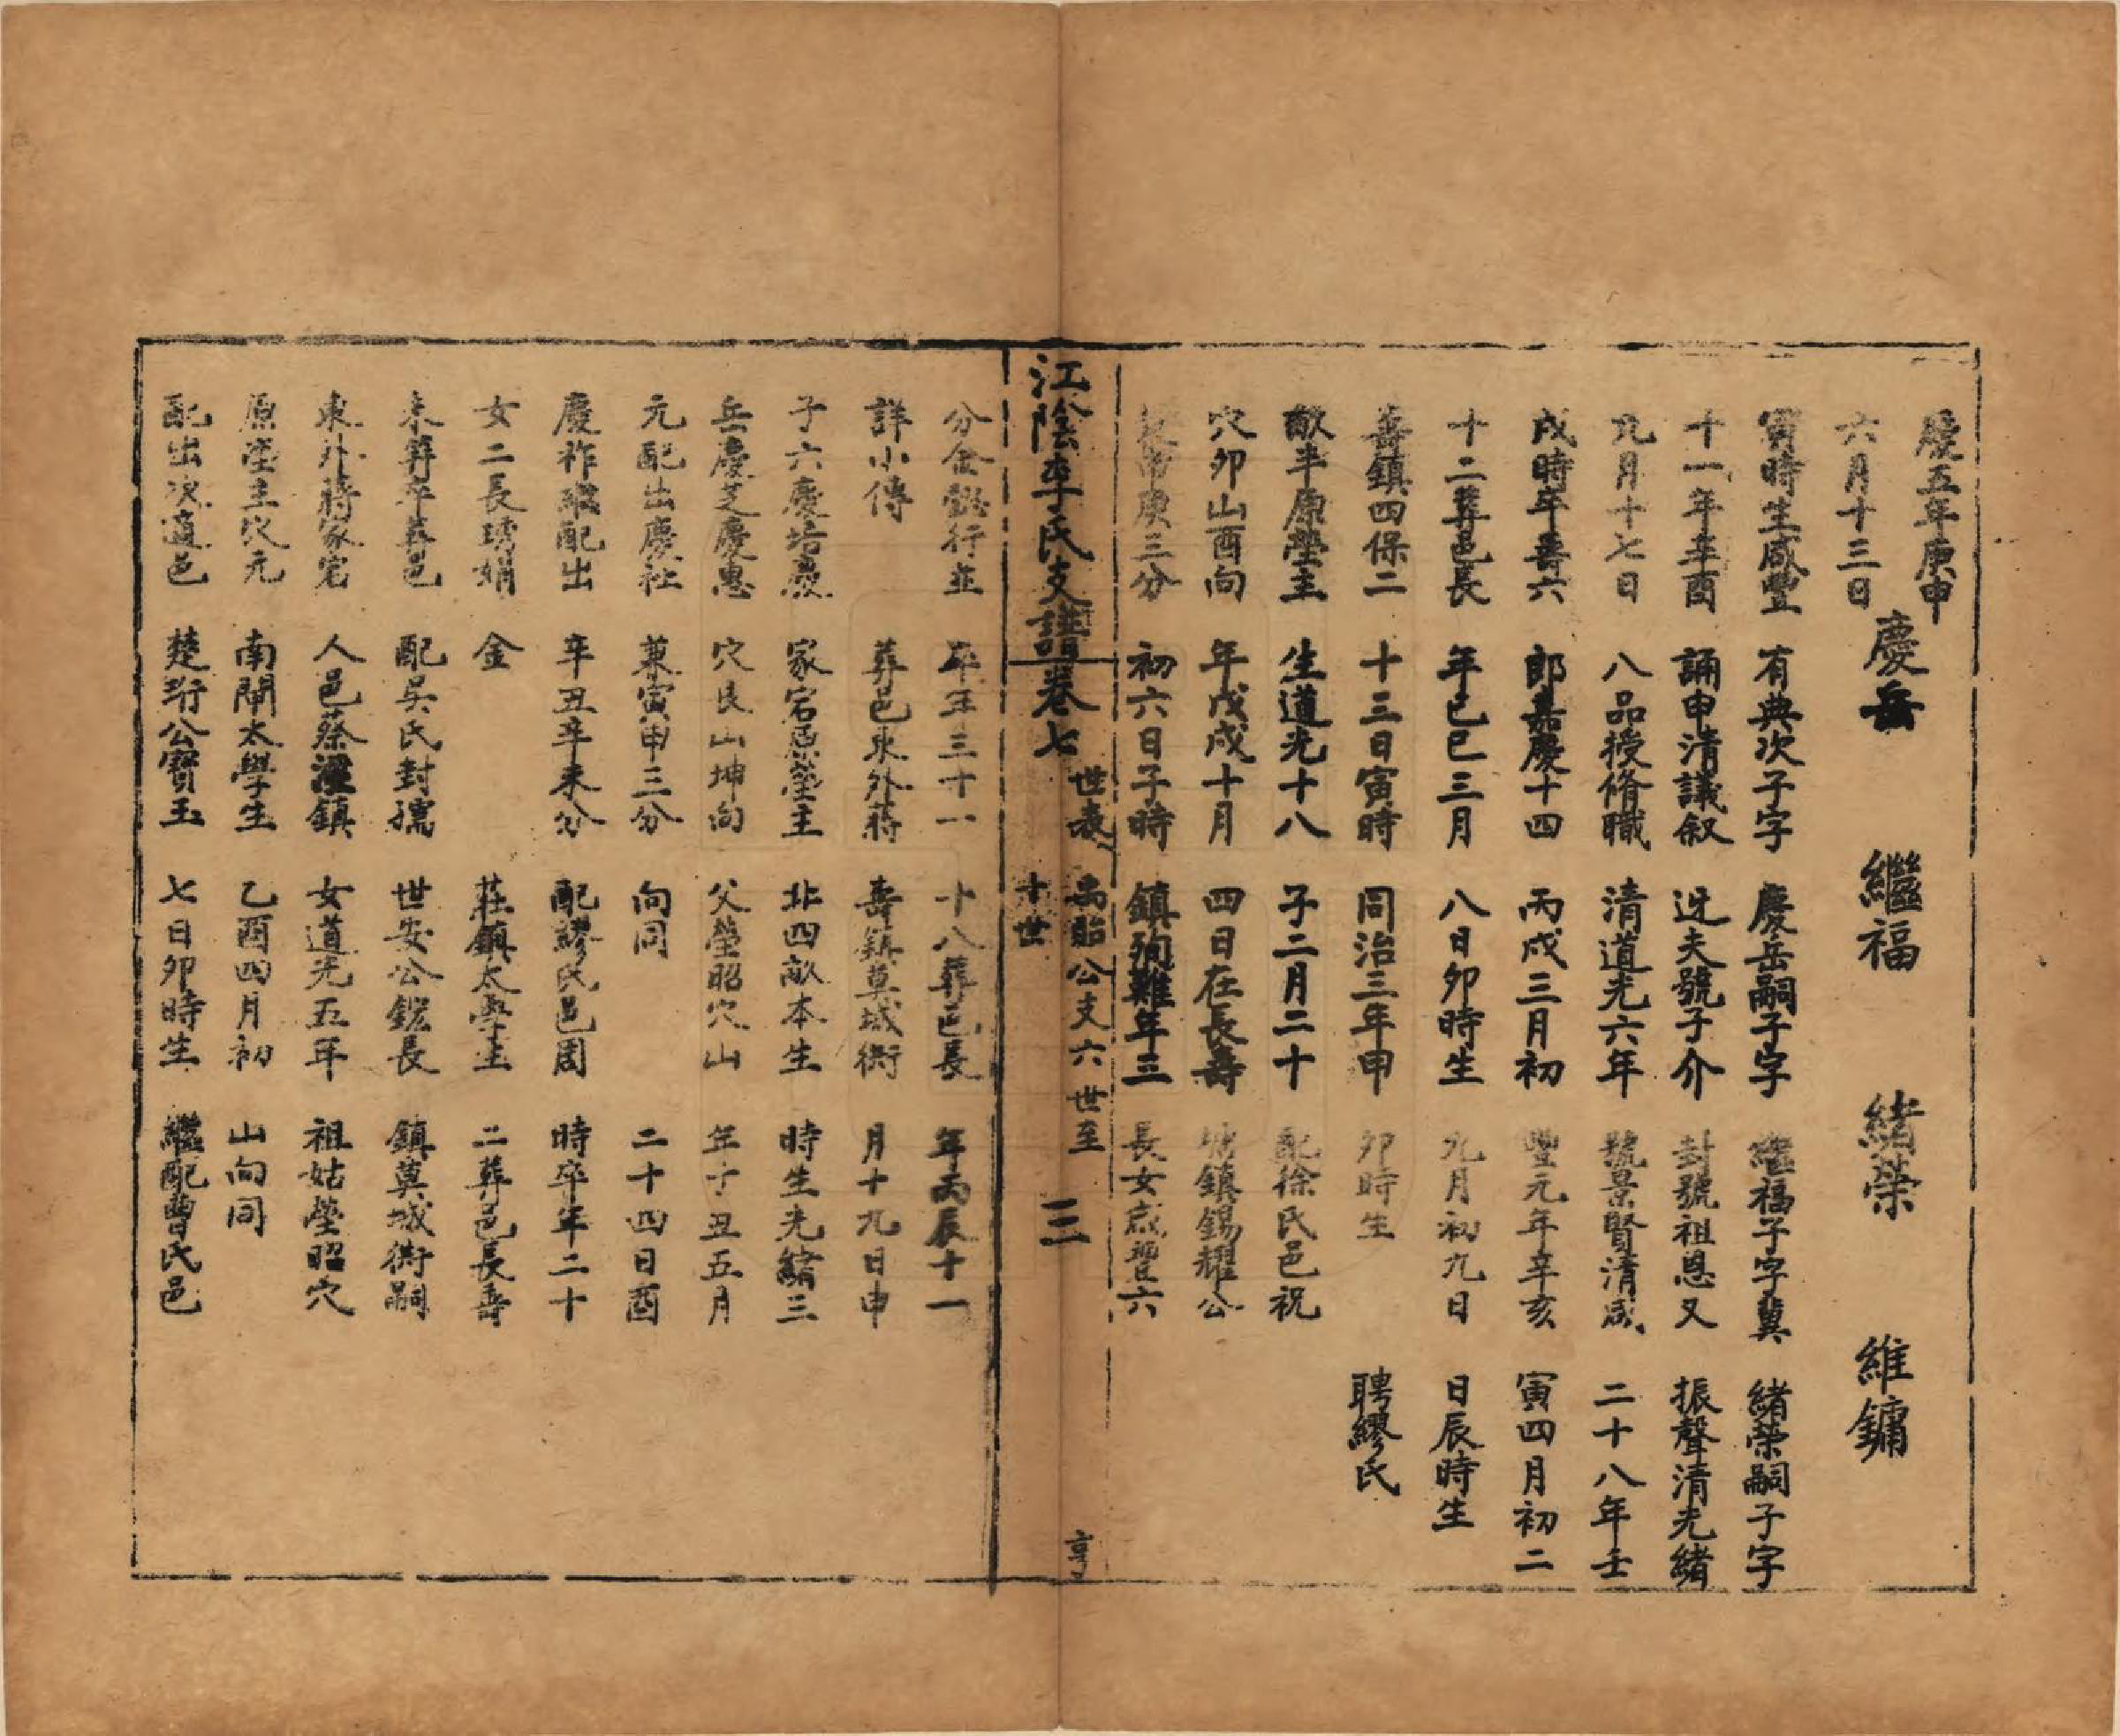 慶五年庚申
六月十三日
寅時生咸豐
十一年辛酉
九月十七日
戌時卒壽六
十二葬邑長
壽鎮四保二
畝半原塋主
穴卯山酉向
庚三分
慶岳
有典次子字
誦申清議叙
八品授脩職
郎嘉慶十四
年已巳三月
十三日寅時
生道光十八
年戊戌十月
初六日子時
繼福
慶岳嗣子字
迓夫號子介
清道光六年
丙戌三月初
八日卯時生
同治三年甲
子二月二十
四日在長壽
鎮殉難年三
緒榮
繼福子字冀
封號祖恩又
號景賢清咸
豐元年辛亥
九月初九日
卯時生
配徐氏邑祝
塘鎮錫耀公
長女咸豐六
維鏞
緒榮嗣子字
振聲清光緒
二十八年壬
寅四月初二
日辰時生
聘繆氏
江陰李氏支譜卷七
世表
禹貽公支六世至
十世
三
亨
分金懿行並
詳小傳
子六慶坊慶
岳慶芝慶惠
元配出慶社
慶祚繼配出
女二長琇娟
未笄卒葬邑
東外蔣家宕
原塋主穴元
配出次適邑
卒年三十一
葬邑東外蔣
家宕原塋主
穴艮山坤向
兼寅申三分
辛丑辛未分
金
配吳氏封孺
人邑蔡涇鎮
南閘太學生
楚珩公寶玉
十八葬邑長
壽鎮草城衖
北四畝本生
父塋昭穴山
向同
配繆氏邑周
莊鎮太學生
世安公鋐長
女道光五年
乙酉四月初
七日卯時生
年丙辰十一
月十九日申
時生光緒三
年丁丑五月
二十四日酉
時卒年二十
二葬邑長壽
鎮莫城衖嗣
祖姑塋昭穴
山向同
繼配曹氏邑